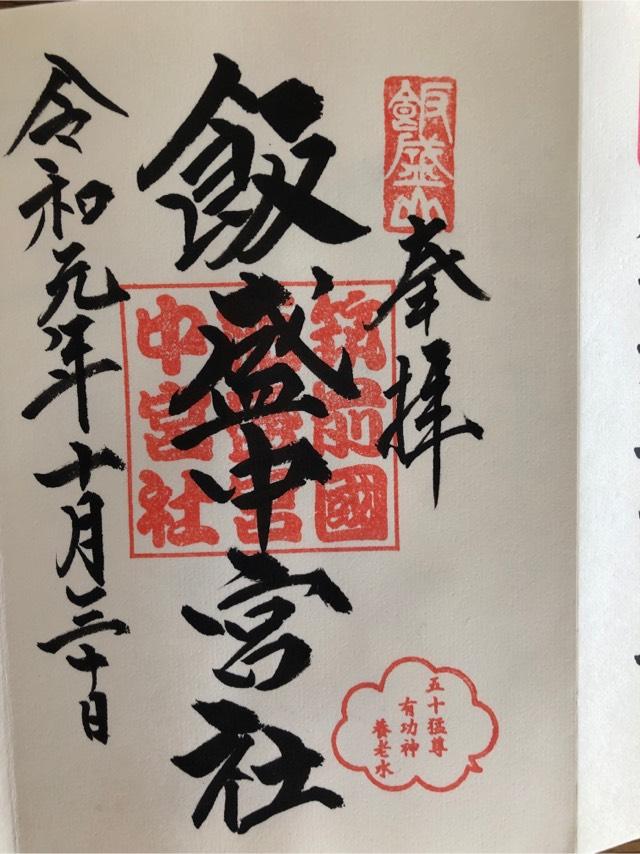 飯盛山
奉拝
筑前國
中宮社
飯盛中宮社
令和元年十月三十日
五十猛尊
有功神
養老水